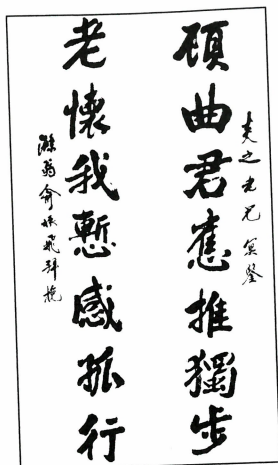 炎之老兄冥鑒
顧曲君應推獨步
老懷我慙感孤行
滌翁俞振飛拜輓